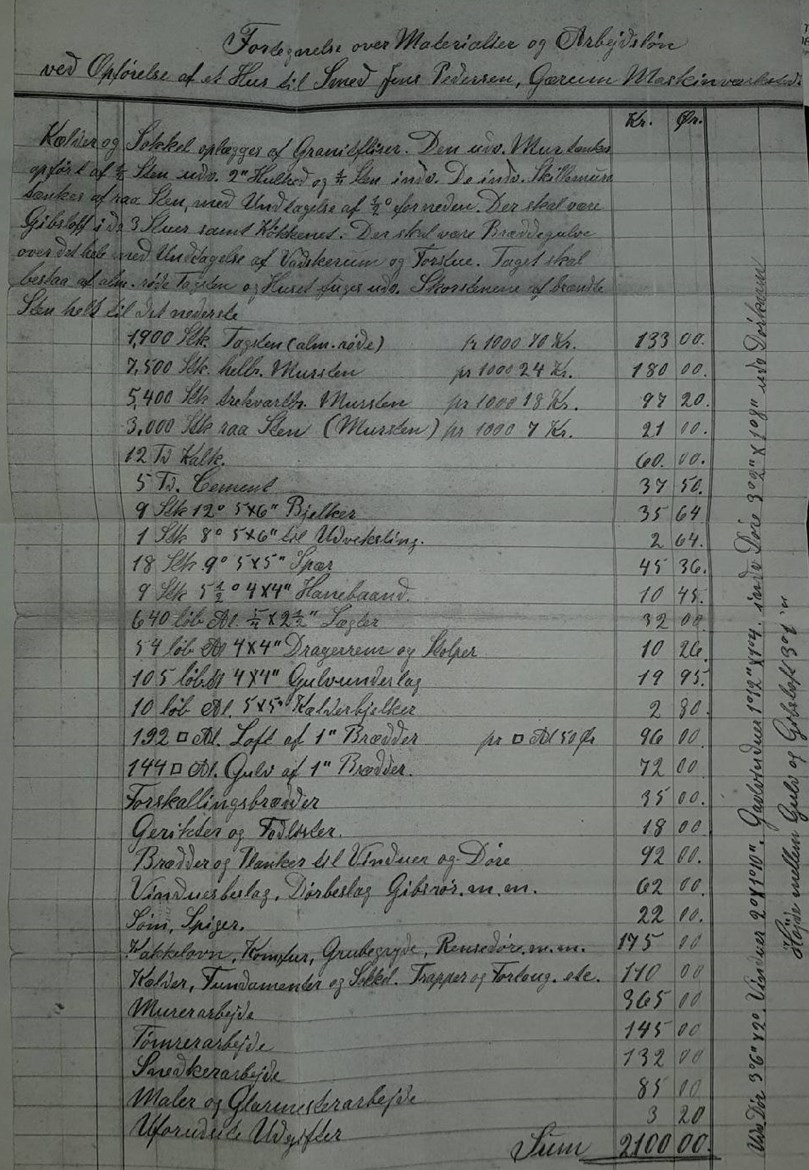 Fortegnelse over Materialier og Arbejdsløn
ved Opførelse af et Hus til Smed Jens Pedersen, Gærum Maskinværksted.
Kr. Ør.
Kælder og Sokkel oplægges af Granitfliser. Den udv. Mur tænkes
opført af ½ Sten udv. 2" Hulhed og ½ Sten indv. De indv. Skillemure
tænkes af raa Sten, med Undtagelse af ½° forneden. Der skal være
Gibsloft i de 3 Stuer samt Køkkenet. Der skal være Bræddegulve
over det hele med Undtagelse af Vadskerum og Forstue. Taget skal
bestaa af alm. røde Tagsten og Huset fuges udv. Skorstenene af brændte
Sten helt til det nederste
1,900 Stk. Tagsten (alm. røde) pr 1000 70 Kr. 133 00.
7,500 Stk. helbr. Mursten pr 1000 24 Kr. 180 00.
5,400 Stk trekvartbr. Mursten pr 1000 18 Kr. 97 20.
3,000 Stk raa Sten (Mursten) pr 1000 7 Kr. 21 00.
12 Td Kalk. 60. 00.
5 Td. Cement 37 50.
9 Stk 12° 5x6" Bjelker 35 64
1 Stk 8° 5x6" til Udveksling. 2 64.
18 Stk 9° 5x5" Spær 45 36.
9 Stk 5½° 4x4" Hanebaand. 10 45.
640 løb Al. x 2½" Lægter 32 00
54 løb Al 4x4" Dragerrem og Stolper 10 26.
105 løb Al 4x4" Gulvunderlag 19 95.
10 løb Al. 5x5" Kælderbjelker 2 80.
192 □ Al. Loft af 1" Brædder pr □ Al 50 Ør 96 00.
144 □ Al. Gulv af 1" Brædder. 72 00.
Forskallingsbrædder 35 00.
Gerikter og Fodlister. 18 00.
Brædder og Planker til Vinduer og Døre 92 00.
Vinduesbeslag, Dørbeslag Gibsrør. m. m. 62 00.
Søm, Spiger. 22 00.
Kakkelovn, Komfur, Grubegryde, Rensedøre. m. m. 175 00
Kælder, Fundamenter og Sokkel. Trapper og Fortoug. etc. 110 00
Murerarbejde 365 00
Tømrerarbejde 145 00
Snedkerarbejde 132 00
Maler og Glarmesterarbejde 85 00
Uforudsete Udgifter 3 20
Sum 2100 00.
Udv Dør 3°6"x2°. Vinduer 2°x1°10". Gavlvinduer 1°12"x1°4. indv Døre 3°2"x1°8" udv Dørkarm
Højde mellem Gulv og Gibsloft